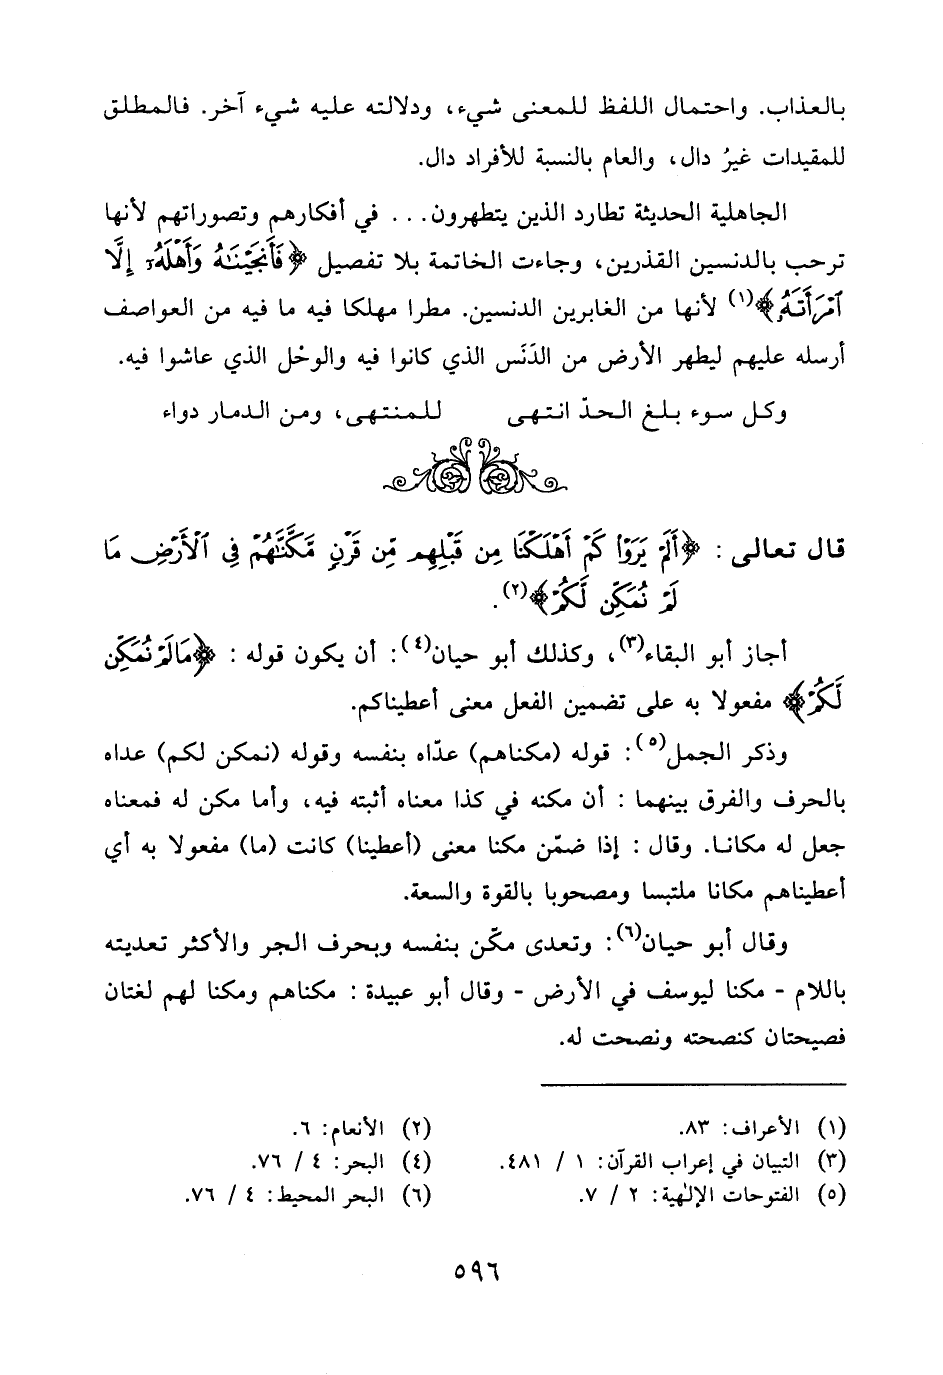 بالعذاب. واحتمال اللفظ للمعنى شيء، ودلالته عليه شيء آخر. فالمطلق
للمقيدات غيرُ دال، والعام بالنسبة للأفراد دال.
الجاهلية الحديثة تطارد الذين يتطهرون... في أفكارهم وتصوراتهم لأنها
ترحب بالدنسين القذرين، وجاءت الخاتمة بلا تفصيل ﴿فَأَنجَيْنَٰهُ وَأَهْلَهُۥٓ إِلَّا
ٱمْرَأَتَهُۥ﴾(١) لأنها من الغابرين الدنسين. مطرا مهلكا فيه ما فيه من العواصف
أرسله عليهم ليطهر الأرض من الدَنَس الذي كانوا فيه والوحْل الذي عاشوا فيه.
وكل سوء بلغ الحدّ انتهى للمنتهى، ومن الدمار دواء
قال تعالى : ﴿أَلَمْ يَرَوْا كَمْ أَهْلَكْنَا مِن قَبْلِهِم مِّن قَرْنٍ مَّكَّنَّٰهُمْ فِى ٱلْأَرْضِ مَا
لَمْ نُمَكِّن لَّكُمْ﴾(٢).
أجاز أبو البقاء(٣)، وكذلك أبو حيان(٤): أن يكون قوله : ﴿مَا لَمْ نُمَكِّن
لَّكُمْ﴾ مفعولا به على تضمين الفعل معنى أعطيناكم.
وذكر الجمل(٥): قوله (مكناهم) عدّاه بنفسه وقوله (نمكن لكم) عداه
بالحرف والفرق بينهما : أن مكنه في كذا معناه أثبته فيه، وأما مكن له فمعناه
جعل له مكانا. وقال : إذا ضمّن مكنا معنى (أعطينا) كانت (ما) مفعولا به أي
أعطيناهم مكانا ملتبسا ومصحوبا بالقوة والسعة.
وقال أبو حيان(٦): وتعدى مكّن بنفسه وبحرف الجر والأكثر تعديته
باللام - مكنا ليوسف في الأرض - وقال أبو عبيدة : مكناهم ومكنا لهم لغتان
فصيحتان كنصحته ونصحت له.
(١) الأعراف: ٨٣. (٢) الأنعام: ٦.
(٣) التبيان في إعراب القرآن: ١ / ٤٨١. (٤) البحر: ٤ / ٧٦.
(٥) الفتوحات الإلٰهية: ٢ / ٧. (٦) البحر المحيط: ٤ / ٧٦.
٥٩٦